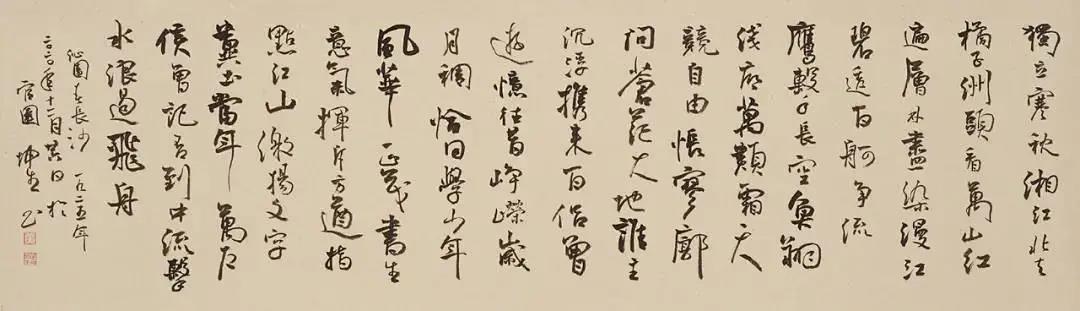 獨立寒秋湘江北去
橘子洲頭看萬山紅
遍層林盡染漫江
碧透百舸争流
鷹擊長空魚翔
浅底萬類霜天
競自由悵寥廓
問蒼茫大地誰主
沉浮携来百侣曾
遊憶往昔崢嶸歲
月稠恰同學少年
風華正茂書生
意氣揮斥方遒指
點江山激揚文字
糞土當年萬户
侯曾記否到中流擊
水浪遏飛舟
沁園春長沙一九二五年
年十二月日於
官園